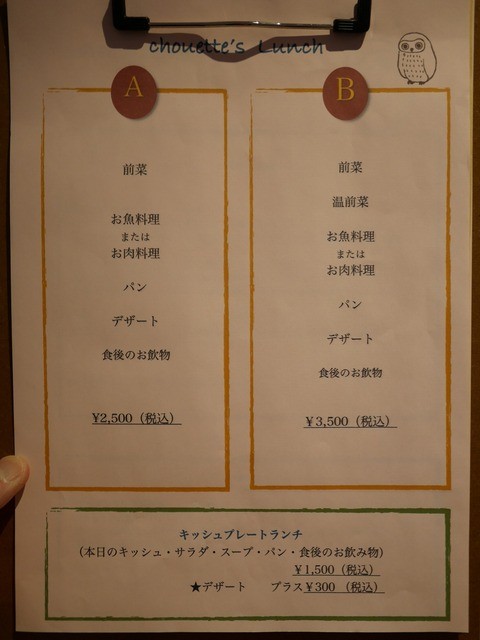 chouette's Lunch
A
前菜
お魚料理
または
お肉料理
パン
デザート
食後のお飲物
¥2,500（税込）
B
前菜
温前菜
お魚料理
または
お肉料理
パン
デザート
食後のお飲物
¥3,500（税込）
キッシュプレートランチ
（本日のキッシュ・サラダ・スープ・パン・食後のお飲み物）
¥1,500（税込）
★デザート　　プラス¥300　（税込）